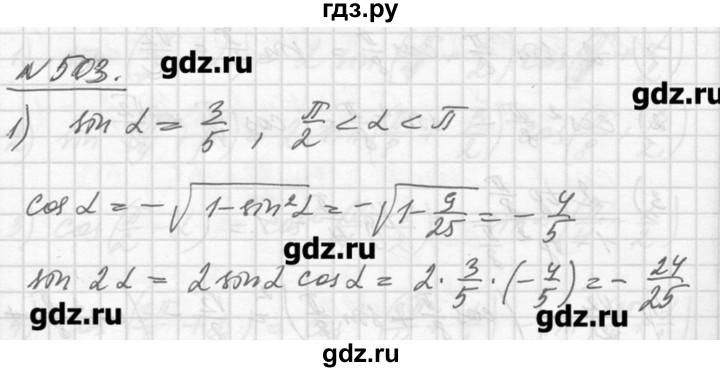 гдз.ру
№503. gdz.ru
gdz.ru
1) sin α = 3/5, π/2 < α < π
cos α = -√(1 - sin²α) = -√(1 - 9/25) = -4/5
gdz.ru
sin 2α = 2 sin α cos α = 2 · 3/5 · (-4/5) = -24/25
gdz.ru gdz.ru
gdz.ru